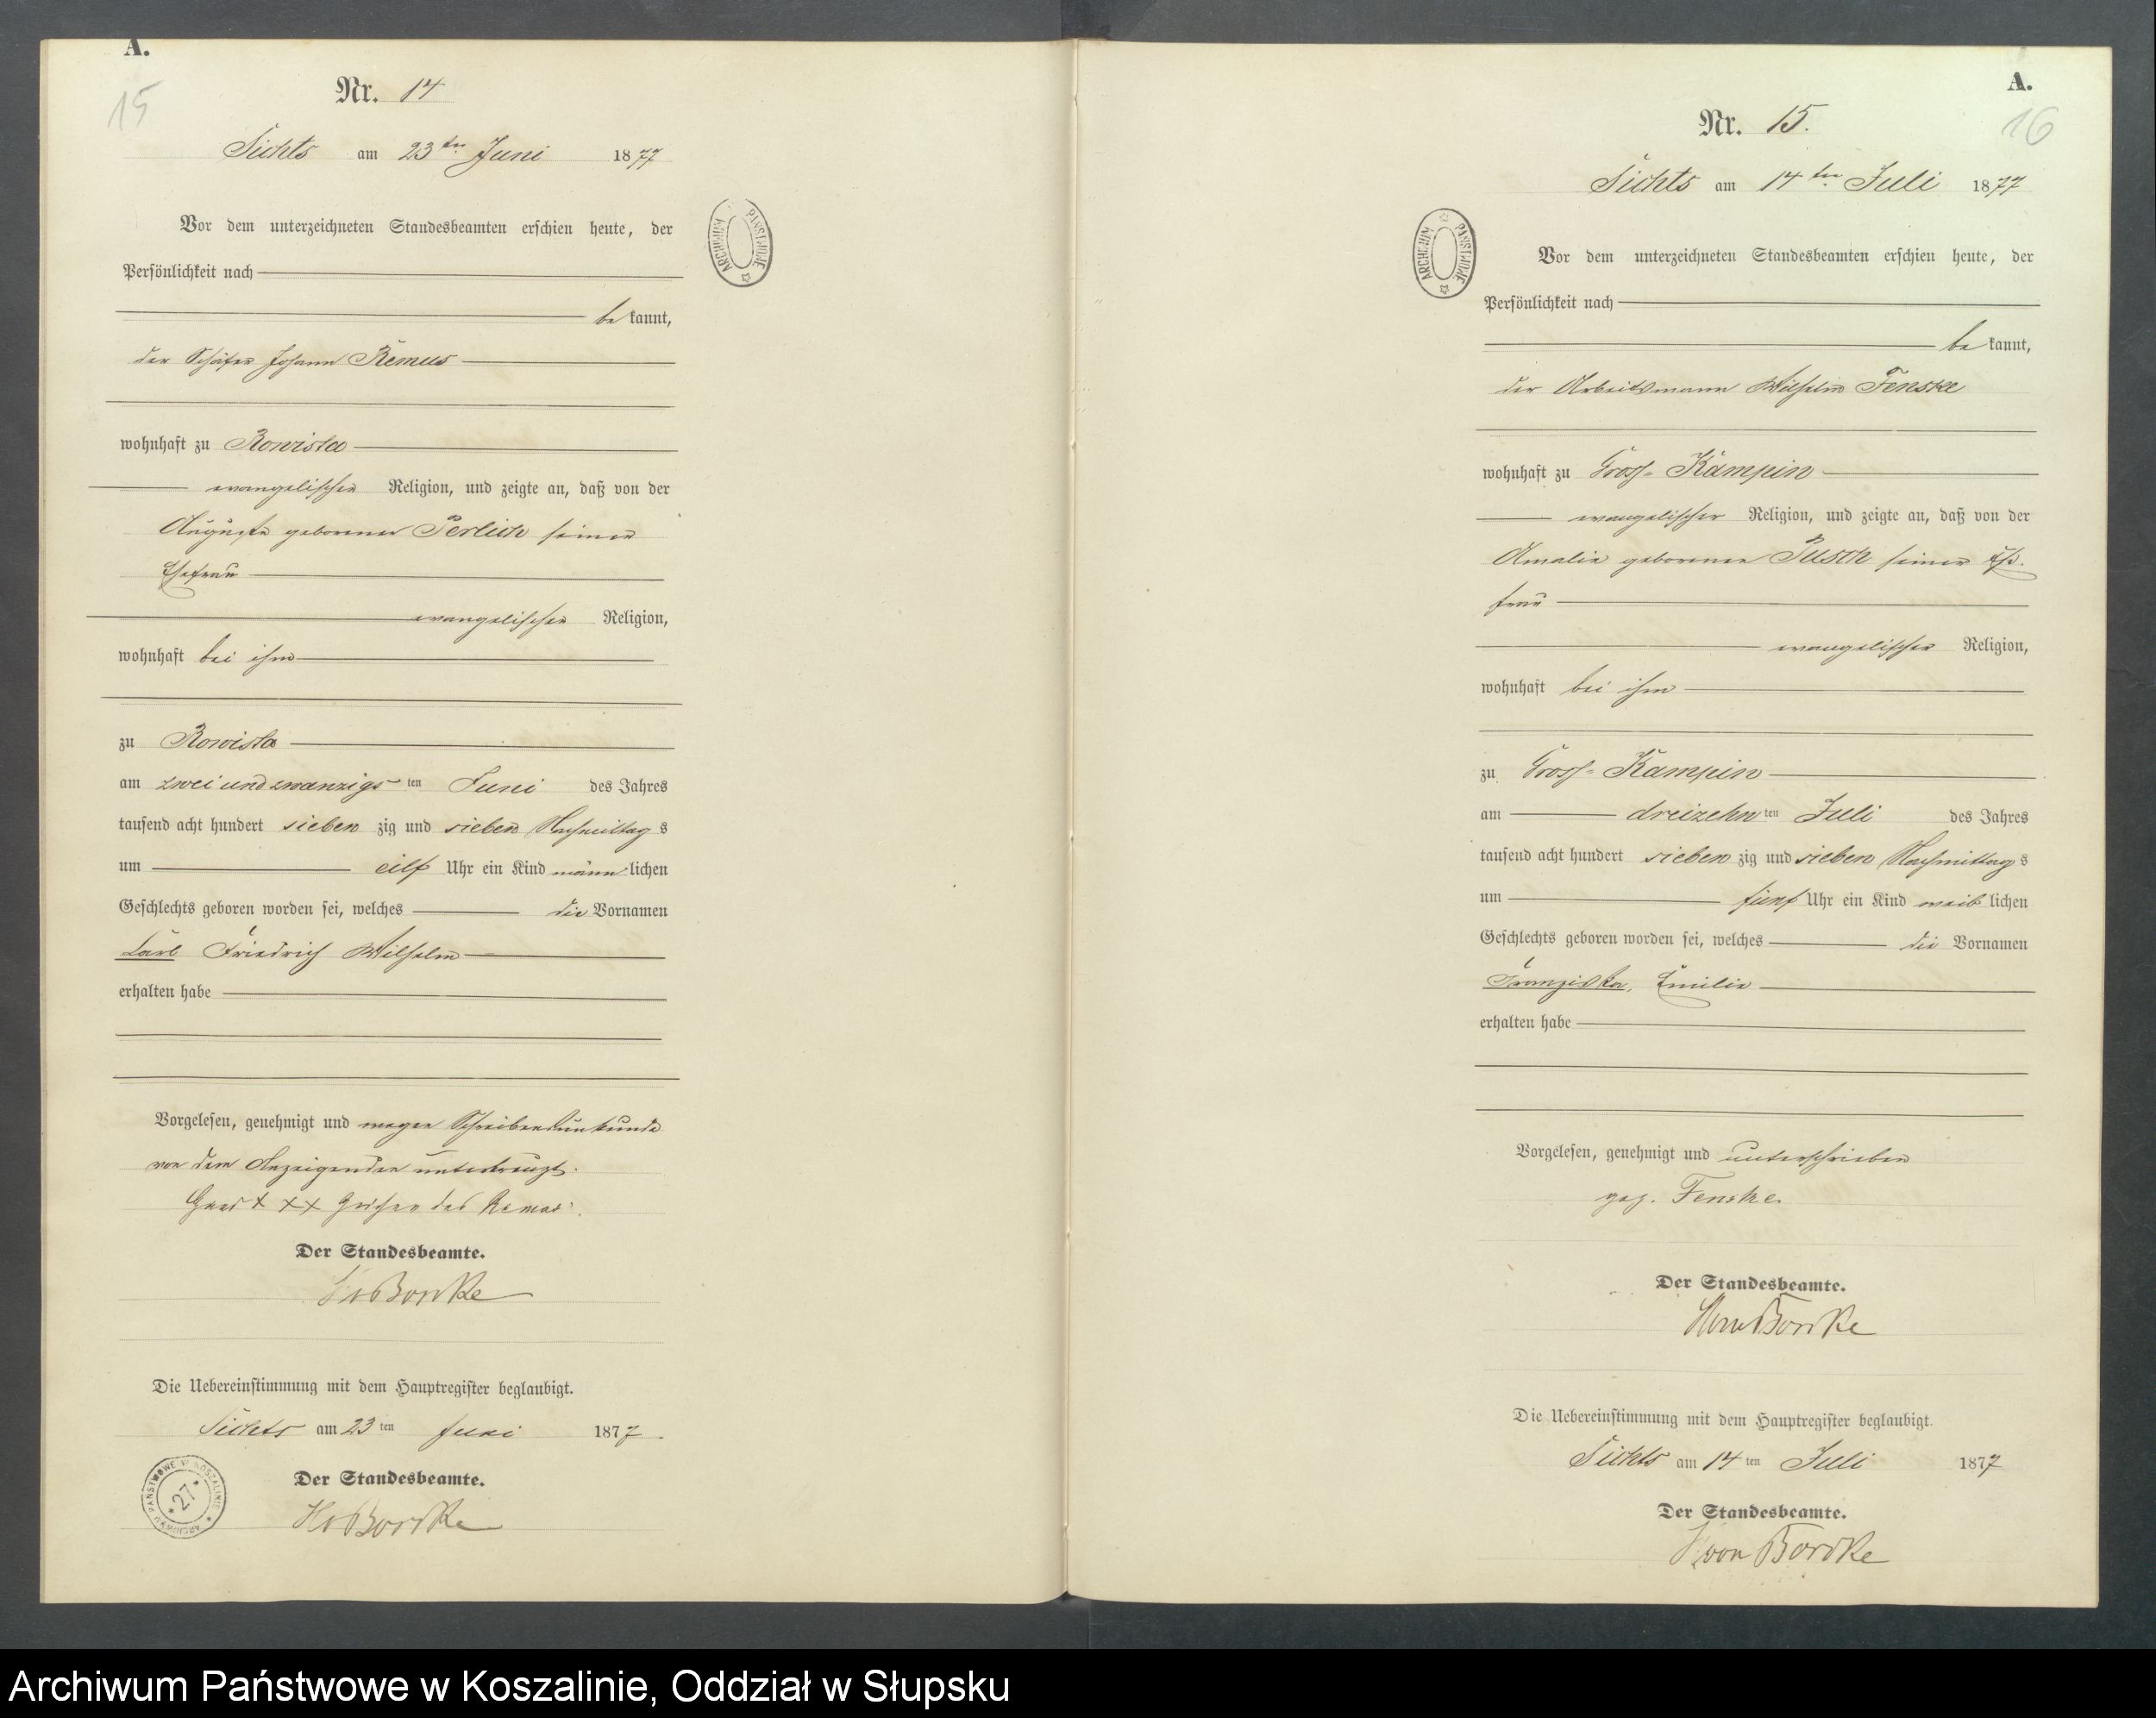 A.
15
Nr. 14
Sichts am 23ten Juni 1877
Vor dem unterzeichneten Standesbeamten erschien heute, der
Persönlichkeit nach
be kannt,
der Schäfer Johann Remus
wohnhaft zu Rowista
evangelischer Religion, und zeigte an, daß von der
Auguste geborener Perlick seiner
Ehefrau
evangelischer Religion,
wohnhaft bei ihm
zu Rowista
am zwei und zwanzigs ten Juni des Jahres
tausend acht hundert sieben zig und sieben Nachmittag s
um eilf Uhr ein Kind männ lichen
Geschlechts geboren worden sei, welches die Vornamen
Carl Friedrich Wilhelm
erhalten habe
Vorgelesen, genehmigt und wegen Schreibensunkunde
von dem Anzeigenden unterkreuzt.
XXX des Remus.
Der Standesbeamte.
HvBorcke
Die Uebereinstimmung mit dem Hauptregister beglaubigt.
Sichts am 23 ten Juni 1877.
Der Standesbeamte.
HvBorcke
ARCHIWUM PAŃSTWOWE
ARCHIWUM PAŃSTWOWE W KOSZALINIE * 27 *
A.
16
Nr. 15.
Sichts am 14ten Juli 1877
ARCHIWUM PAŃSTWOWE
Vor dem unterzeichneten Standesbeamten erschien heute, der
Persönlichkeit nach
be kannt,
der Arbeitsmann Wilhelm Fenske
wohnhaft zu Gross-Kämpin
evangelischer Religion, und zeigte an, daß von der
Amalie geborener Pusch seiner Ehe-
frau
evangelischer Religion,
wohnhaft bei ihm
zu Gross-Kampin
am dreizehn ten Juli des Jahres
tausend acht hundert sieben zig und sieben Nachmittag s
um fünf Uhr ein Kind weib lichen
Geschlechts geboren worden sei, welches die Vornamen
Franziska, Emilie
erhalten habe
Vorgelesen, genehmigt und unterschrieben
gez. Fenske.
Der Standesbeamte.
HvonBorcke
Die Uebereinstimmung mit dem Hauptregister beglaubigt.
Sichts am 14 ten Juli 1877
Der Standesbeamte.
HvonBorcke
Archiwum Państwowe w Koszalinie, Oddział w Słupsku